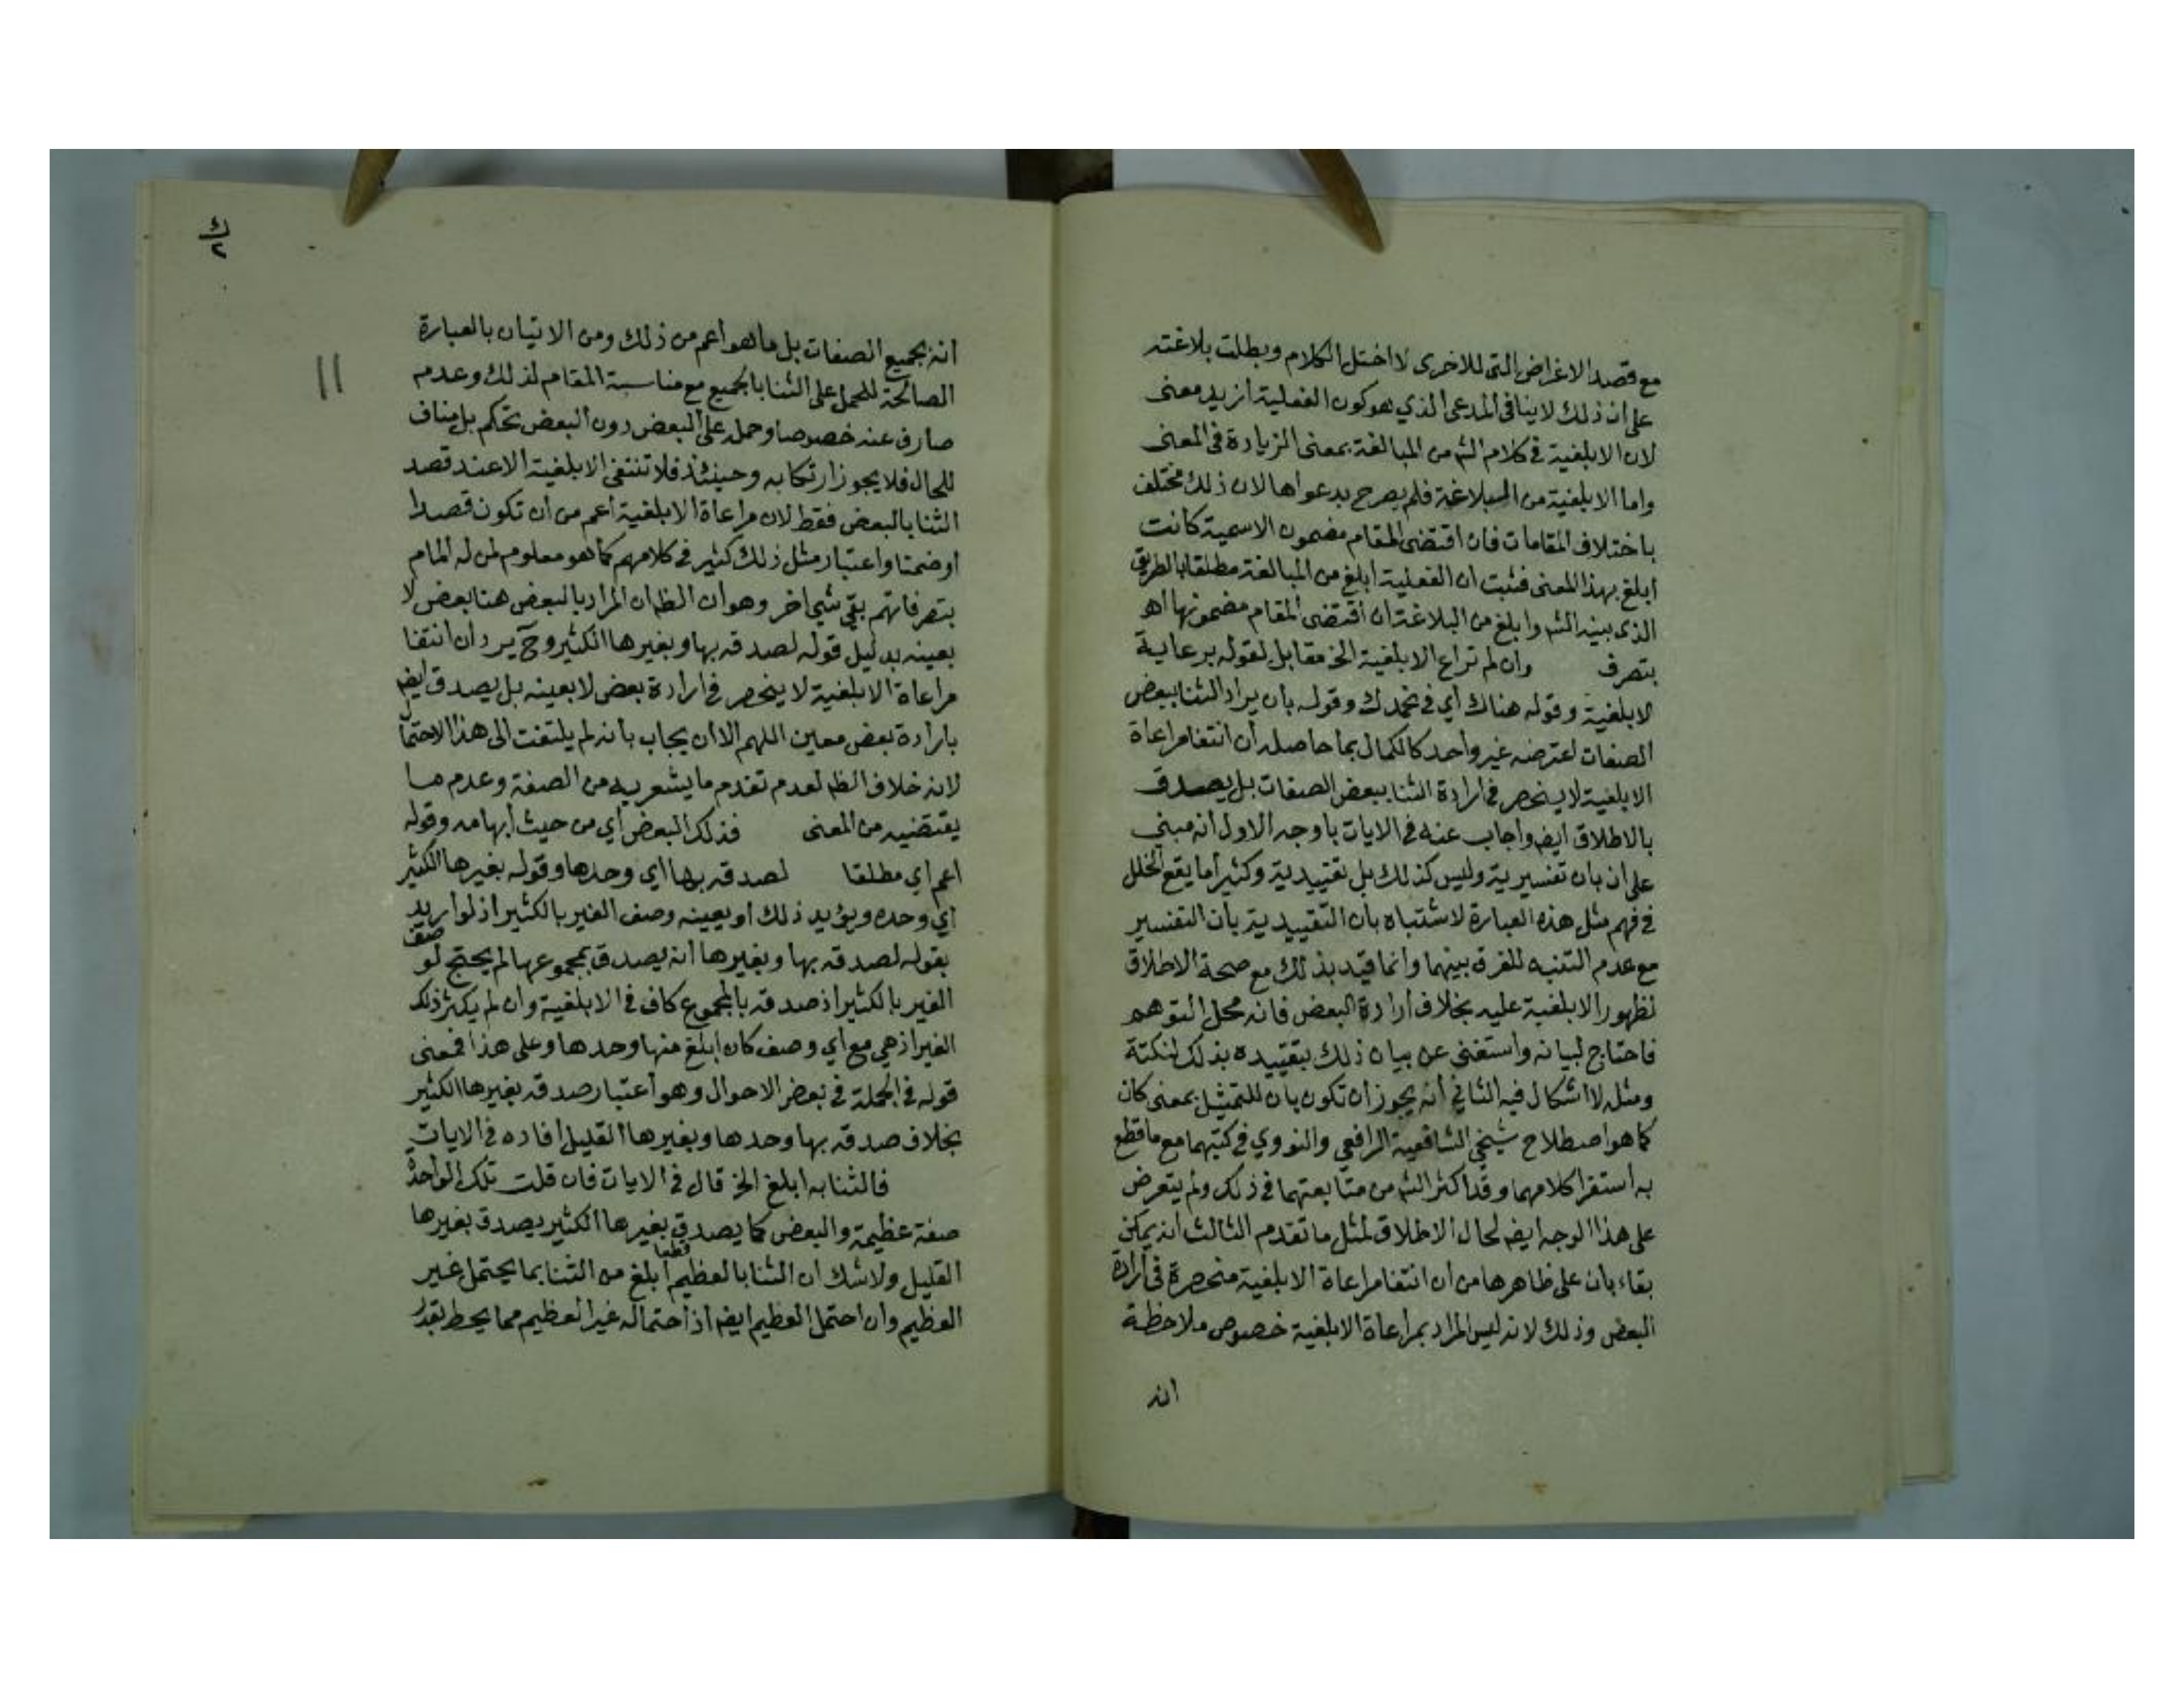 مع قصد الاغراض التى للاخرى لا اختل الكلام وبطلت بلاغته
على ان ذلك لا ينافى المدعى الذي هو كون الفعلية ازيد معنى
لان الابلغية في كلام الش من المبالغة بمعنى الزيادة في المعنى
واما الابلغية من البلاغة فلم يصرح بدعواها لان ذلك مختلف
باختلاف المقامات فان اقتضى المقام مضمون الاسمية كانت
ابلغ بهذا المعنى فثبت ان الفعلية ابلغ من المبالغة مطلقا بالطريق
الذى بينه الش وابلغ من البلاغة ان اقتضى المقام مضمونها اهـ
بتصرف وان لم تراع الابلغية الخ مقابل لقوله برعاية
الابلغية وقوله هناك أي في نحمدك وقوله بان يراد الثنا ببعض
الصفات اعترضه غير واحد كالكمال بما حاصله أن انتفا مراعاة
الابلغية لا ينحصر في ارادة الثنا ببعض الصفات بل يصدق
بالاطلاق ايض واجاب عنه في الايات باوجه الاول انه مبنى
على ان بان تفسيرية وليس كذلك بل تقييدية وكثيرا ما يقع الخلل
في فهم مثل هذه العبارة لاشتباه بان التقييدية بأن التفسير
مع عدم التنبه للفرق بينهما وانما قيد بذلك مع صحة الاطلاق
لظهور الابلغية عليه بخلاف ارادة البعض فانه محل التوهم
فاحتاج لبيانه واستغنى عن بيان ذلك بتقييده بذلك لنكتة
ومثله لا اشكال فيه الثاني أنه يجوز ان تكون بان للتمثيل بمعنى كان
كما هو اصطلاح شيخي الشافعية الرافعي والنووي في كتبهما مع ما قطع
به استقرا كلامهما وقد اكثر الش من متابعتهما في ذلك ولم يتعرض
على هذا الوجه ايض لحال الاطلاق لمثل ما تقدم الثالث انه يمكن
بقاء بان على ظاهرها من ان انتفا مراعاة الابلغية منحصرة في ارادة
البعض وذلك لانه ليس المراد بمراعاة الابلغية خصوص ملاحظة
انه
ك
٢
١١
انه بجميع الصفات بل ما هو أعم من ذلك ومن الاتيان بالعبارة
الصالحة للحمل على الثنا بالجميع مع مناسبة المقام لذلك وعدم
صارف عنه خصوصا وحمله على البعض دون البعض تحكم بل مناف
للحال فلا يجوز ارتكابه وحينئذ فلا تنتفى الابلغية الا عند قصد
الثنا بالبعض فقط لان مراعاة الابلغية أعم من ان تكون قصدا
اوضمنا واعتبار مثل ذلك كثير في كلامهم كما هو معلوم لمن له المام
بتصرفاتهم بقي شي اخر وهو ان الظ ان المراد بالبعض هنا بعض لا
بعينه بدليل قوله لصدقه بها وبغيرها الكثير وح يرد ان انتفا
مراعاة الابلغية لا ينحصر في ارادة بعض لا بعينه بل يصدق ايض
بارادة بعض معين اللهم الا ان يجاب بانه لم يلتفت الى هذا الاحتما
لانه خلاف الظ لعدم تقدم ما يشعر به من الصفة وعدم ما
يقتضيه من المعنى فذلك البعض أي من حيث ابهامه وقوله
اعم اي مطلقا لصدقه بها اي وحدها وقوله بغيرها الكثير
أي وحده ويؤيد ذلك او يعينه وصف الغير بالكثير اذ لو اريد
بقوله لصدقه بها وبغيرها انه يصدق بمجموعها لم يحتج لو صف
الغير بالكثير اذ صدقه بالمجموع كاف في الابلغية وان لم يكثر ذلك
الغير اذ هي مع اي وصف كان ابلغ منها وحدها وعلى هذا فمعنى
قوله في الجملة في بعض الاحوال وهو اعتبار صدقه بغيرها الكثير
بخلاف صدقه بها وحدها وبغيرها القليل افاده في الايات
فالثنا به ابلغ الخ قال في الايات فان قلت تلك الواحدة
صفة عظيمة والبعض كما يصدق بغيرها الكثير يصدق بغيرها
القليل ولا شك ان الثنا بالعظيم قطعا أبلغ من الثنا بما يحتمل غير
العظيم وان احتمل العظيم ايض اذ احتماله غير العظيم مما يحط بقدر